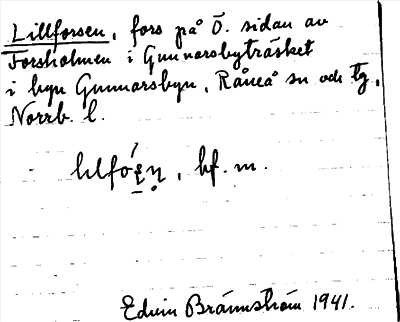 Lillforsen, fors på Ö. sidan av
Forsholmen i Gunnarsbyträsket
i byn Gunnarsbyn, Råneå sn och tg,
Norrb. l.
bf. m.
Edvin Brännström 1941.